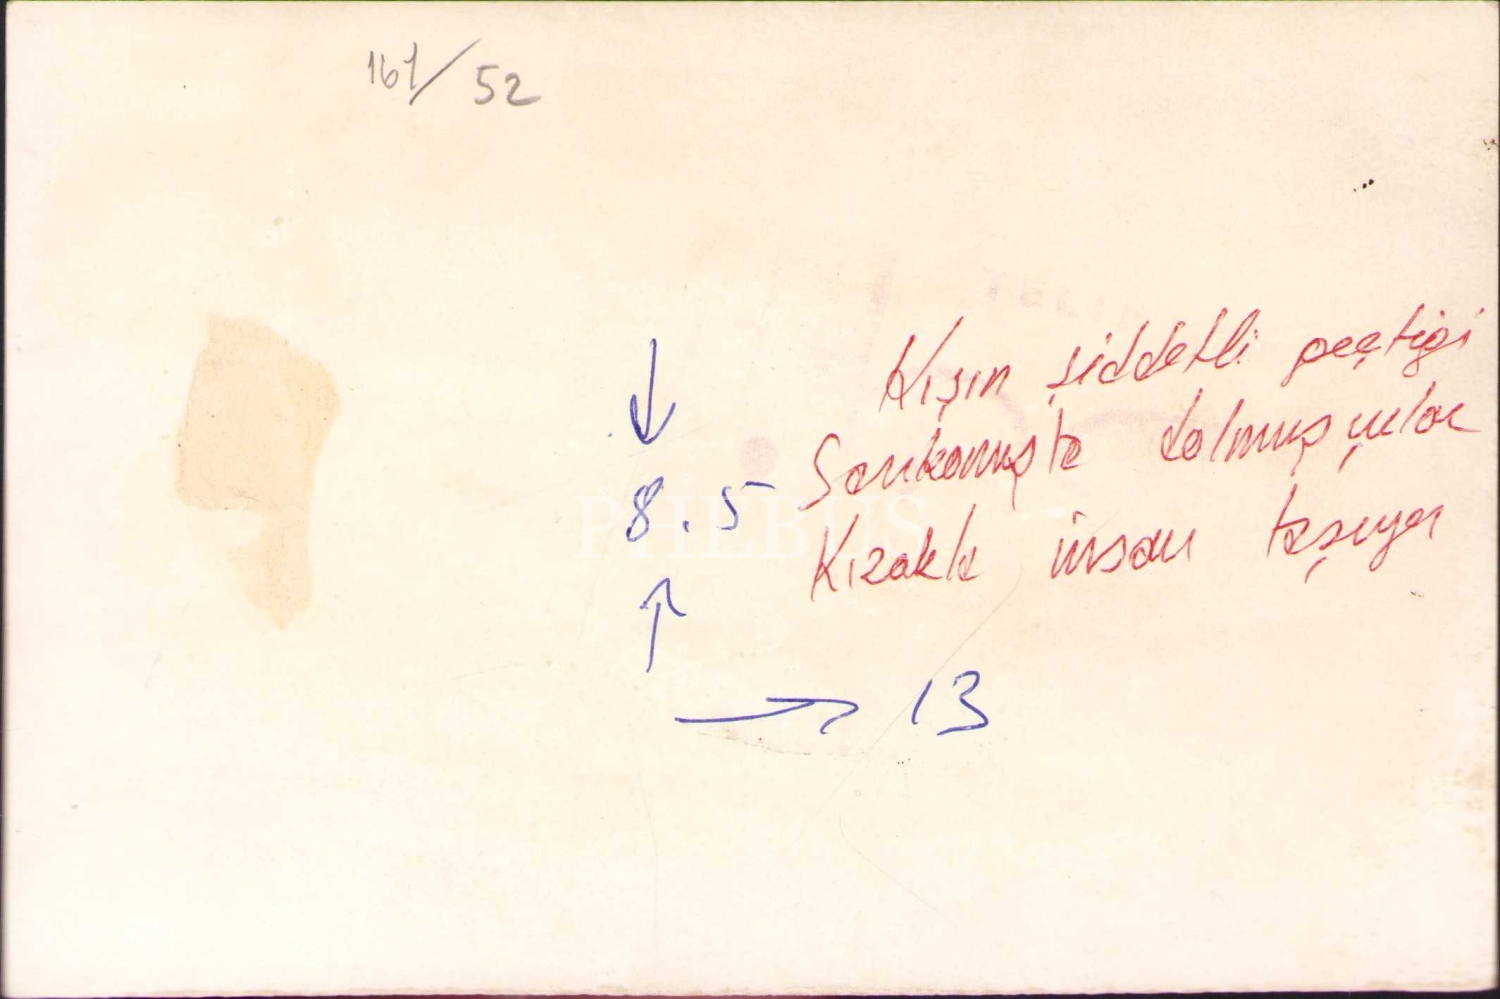 161/52
Kışın şiddetli geçtiği
Sarıkamışta dolmuşçular
Kızakla insan taşıyor
↓
8.5
↑
→ 13
PHEBUS